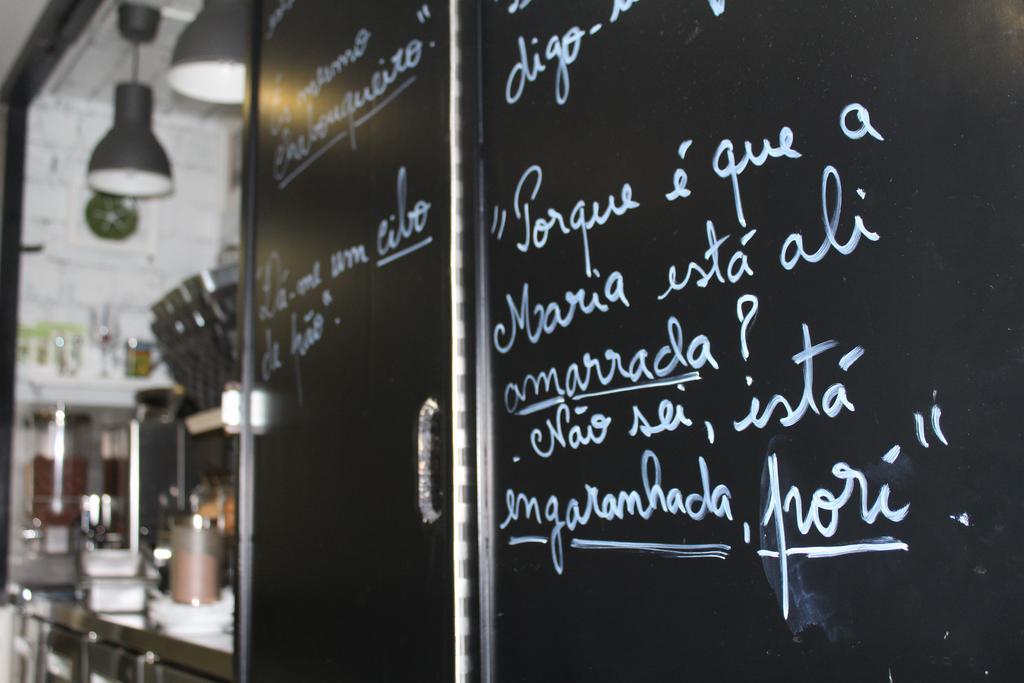 És mesmo
"Dá-me um cibo
de pão".
digo-
"Porque é que a
Maria está ali
amarrada?
- Não sei, está
engaranhada, porí"